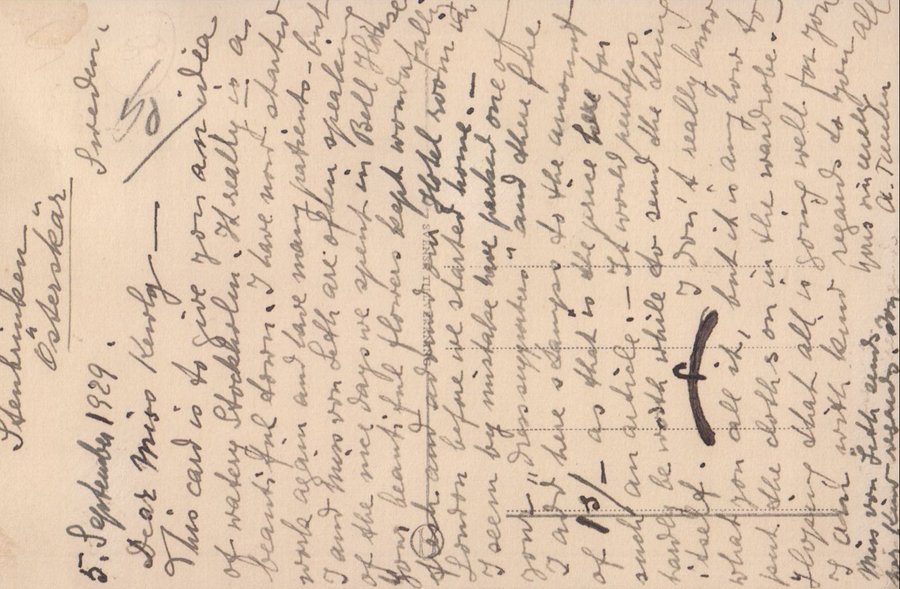 Stenhinken
Österskär
Sweden.
5. September 1929.
Dear Miss Kendy —
This card is to give you an idea
of watery Stockholm. It really is a
beautiful town. I have now started
work again and have many patients - but
I and Miss von Seth are often speaking
of the nice days we spent in Bell House
Your beautiful flowers kept wonderfully
fresh and adorned our Hotel room in
London before we started home. —
I seem by mistake have packed one of
your "dress suspenders" and there fore
I add here stamps to the amount
of 1/3/- as that is the price here for
such an article — It would perhaps
hardly be worth while to send the thing
itself. I don't really know
what you call it, but it is any how to
put the clothes on in the wardrobe. —
Hoping that all is going well for you
I am with kind regards to you all
yours sincerely
A. 
Miss von Seth sends
her kind regards too